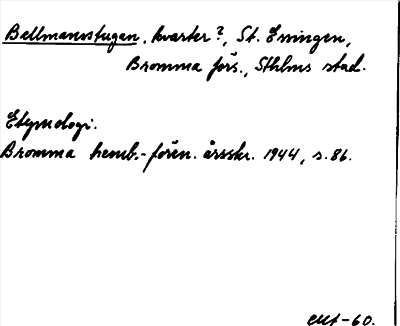 Bellmansstugan, kvarter?, St. Ängen,
Bromma förs., Sthlms stad.
Etymologi.
Bromma hemb.-fören. årsskr. 1944, s. 86.
-60.